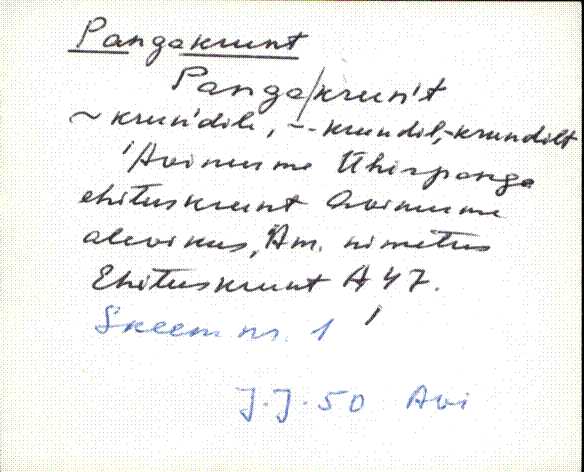 Pangakrunt
Panga/krun't
~ krun'dile, -- krundil, -krundilt
'Avinurme Ühispanga
ehituskrunt Avinurme
alevikus, Am. nimetus
Ehituskrunt A 47.
Skeem nr. 1
J.J. 50 Avi